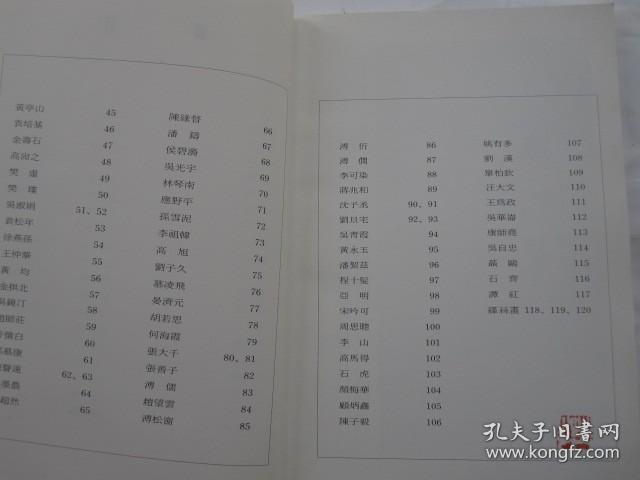 黃亭山 45
袁培基 46
金壽石 47
高淞之 48
樊虛 49
樊瓘 50
吳淑娟 51、52
袁松年 53
徐燕孫 54
王仲華 55
黃均 56
金拱北 57
吳鏡汀 58
59
60
慕康 61
聲遠 62、63
墨農 64
超然 65
陳緣督 66
潘鑄 67
侯碧漪 68
吳光宇 69
林琴南 70
應野平 71
孫雪泥 72
李祖韓 73
高旭 74
劉子久 75
慕凌飛 76
晏濟元 77
胡若思 78
何海霞 79
張大千 80、81
張善子 82
溥儒 83
趙望雲 84
溥松窗 85
溥忻 86
溥僩 87
李可染 88
蔣兆和 89
沈子丞 90、91
劉旦宅 92、93
吳青霞 94
黃永玉 95
潘絜茲 96
程十髮 97
亞明 98
宋吟可 99
周思聰 100
李山 101
高馬得 102
石虎 103
顏梅華 104
顧炳鑫 105
陳子毅 106
姚有多 107
劉漢 108
單柏欽 109
汪大文 110
王爲政 111
吳華崙 112
康師堯 113
吳自忠 114
聶鷗 115
石齊 116
譚紅 117
緙絲畫 118、119、120
孔夫子旧书网
www.kongfz.com